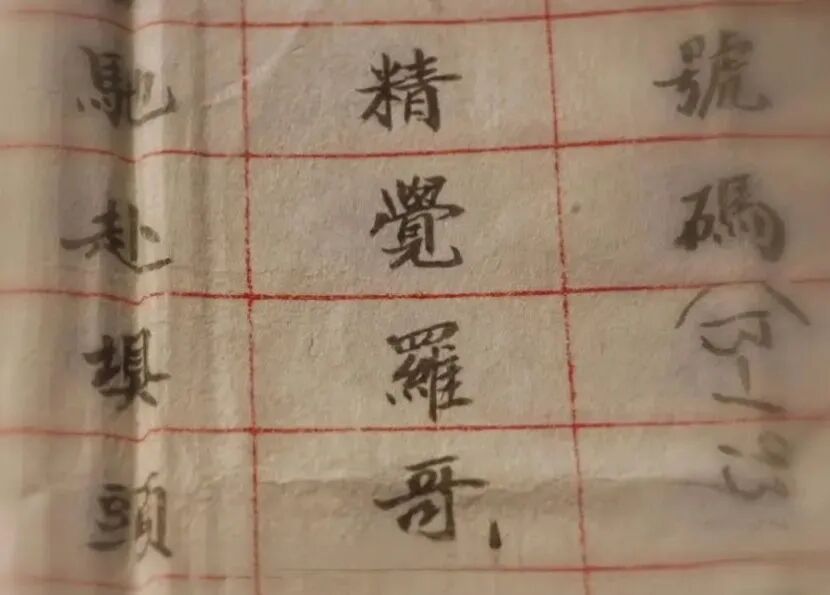 號碼
精覺羅哥，
馳赴埧頭